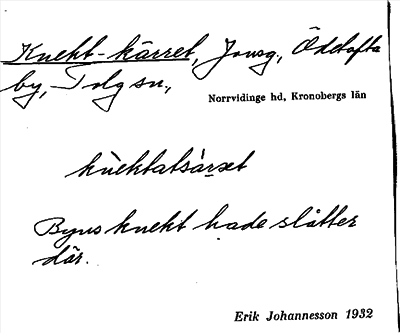 Knekt-kärret, Jonsg., Ödetofta
by, Tolg sn.,
Norrvidinge hd, Kronobergs län
Byns knekt hade slåtter
där.
Erik Johannesson 1932